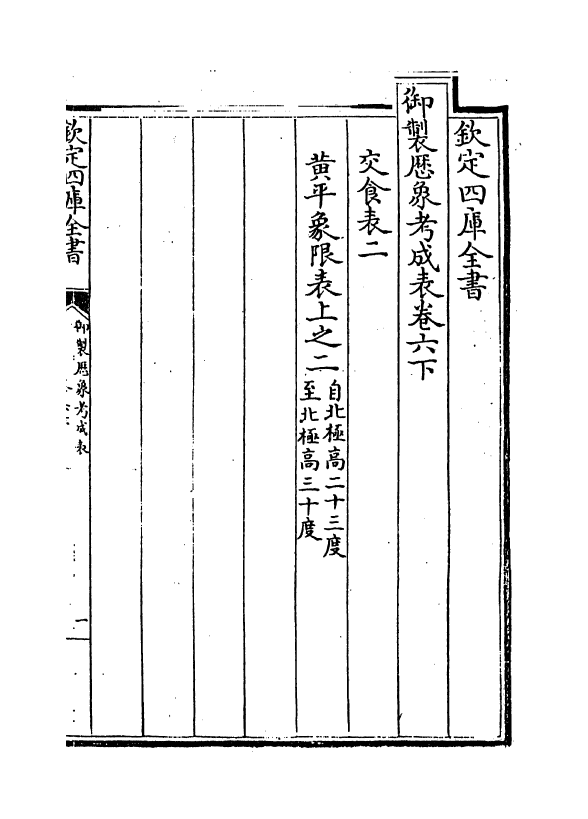 欽定四庫全書
御製厯象考成表卷六下
交食表二
黄平象限表上之二
自北極高二十三度
至北極高三十度
欽定四庫全書
御製厯象考成表
一